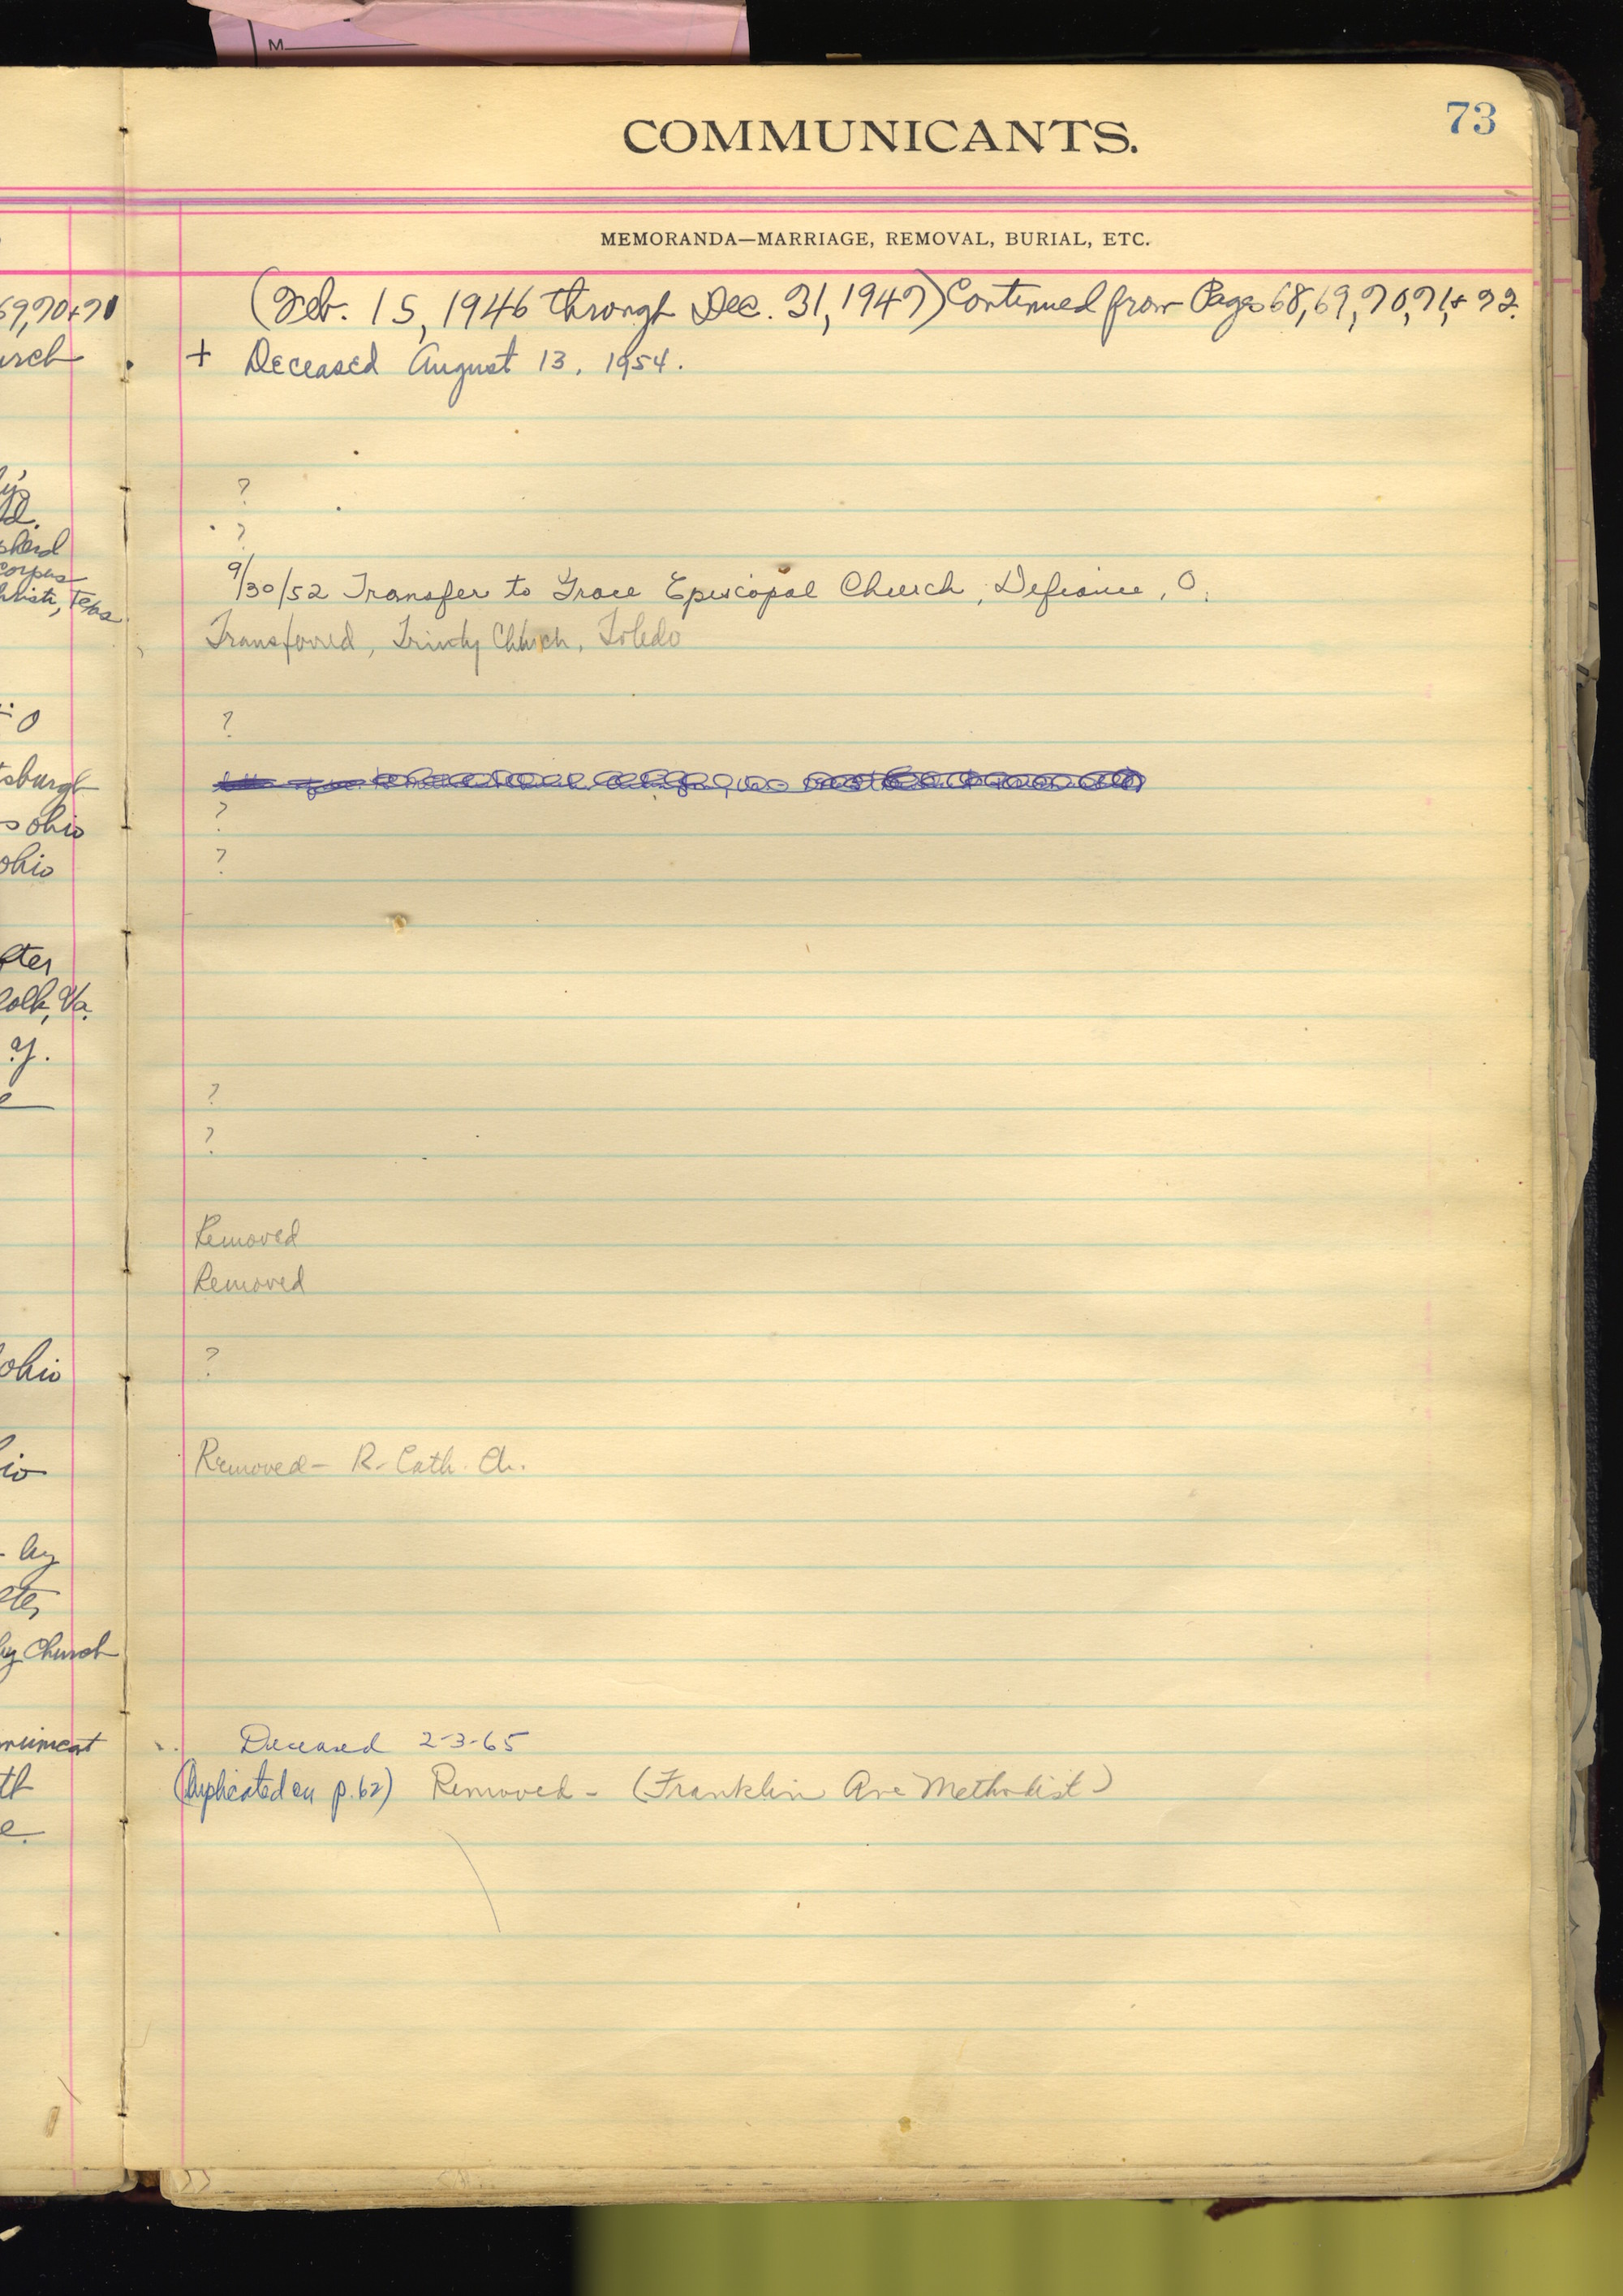 M
COMMUNICANTS.
73
MEMORANDA—MARRIAGE, REMOVAL, BURIAL, ETC.
69,70+71
(Feb. 15, 1946 through Dec. 31, 1947) Continued from Pages 68, 69, 70, 71, + 72.
urch
+ Deceased August 13, 1954.
?
?
Corpus
Christi, Texas
9/30/52 Transfer to Grace Episcopal Church, Defiance, O.
Transferred, Trinity Church, Toledo
O
?
tsburgh
?
ohio
?
ohio
folk, Va.
Y.
?
?
Removed
Removed
?
ohio
Removed - R. Cath. Ch.
io
by
by Church
Deceased 2-3-65
(Duplicated on p. 62) Removed - (Franklin Ave Methodist)